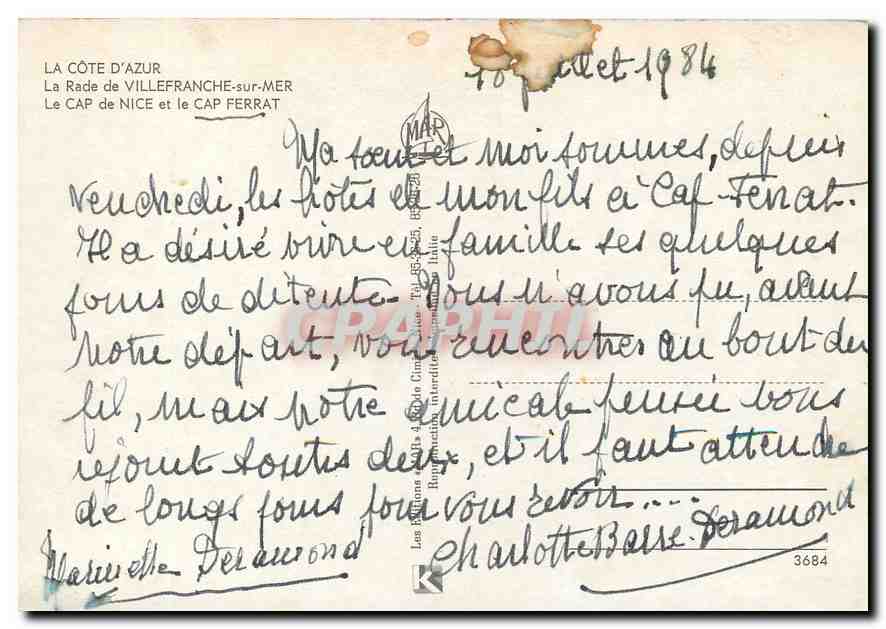 LA CÔTE D'AZUR
La Rade de VILLEFRANCHE-sur-MER
Le CAP de NICE et le CAP FERRAT
10 juillet 1984
MAR
Ma soeur et moi sommes, depuis
vendredi, les hôtes de mon fils à Cap-Ferrat.
Il a désiré vivre en famille ses quelques
jours de détente. Nous n'avons pu, avant
notre départ, vous rencontrer au bout du
fil, mais notre amicale pensée vous
rejoint toutes deux, et il faut attendre
de longs jours pour vous revoir....
Marinette Deramond Charlotte Basse-Deramond
Les Editions «MAR» 4, Nice - Tél. 85-
Reproduction interdite Italie
CPAPHIL
K
3684